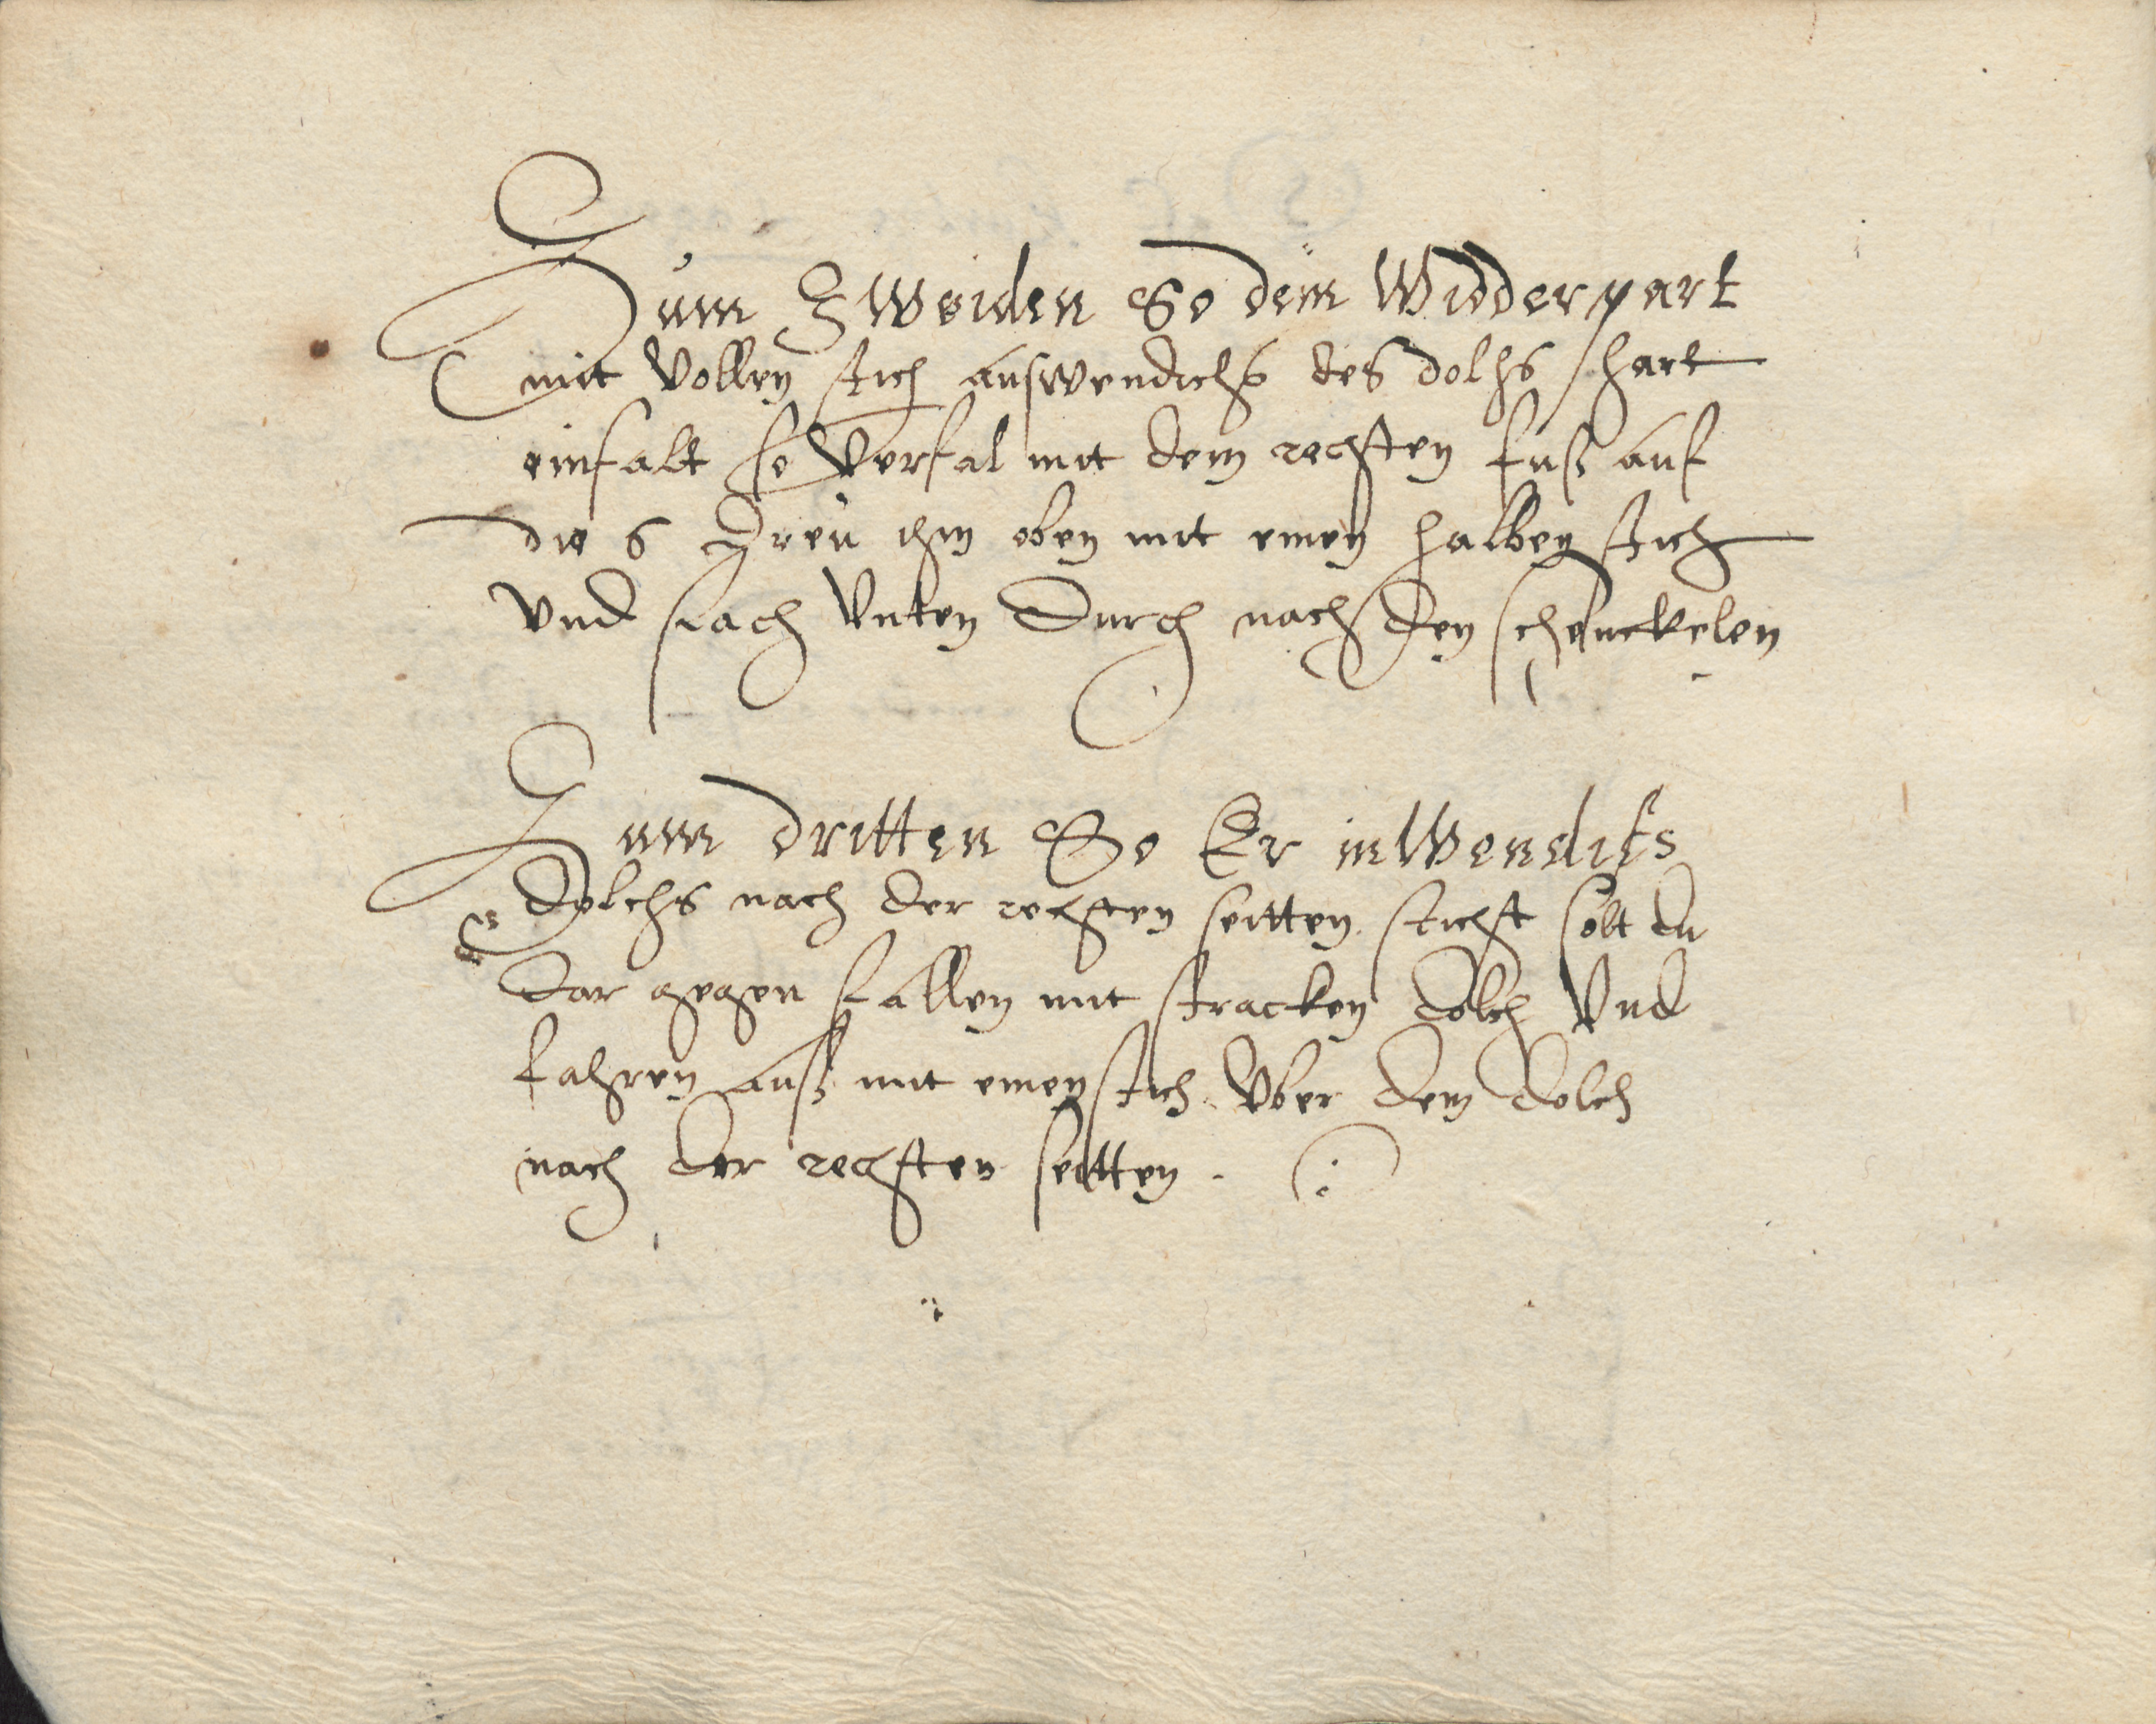 Zum Zweiden So dem Widderpart
mit Vollen stich auswendichs des dolhs hart
einfalt so Verfal mit dem rechten fuß auf
die 6 ihm oben mit einen halben stich
Vnd Vnten durch nach den schenckelen
Zum dritten So Er inWendiks
dolchs nach der rechten seitten sticht solt du
dar gegen fallen mit stracken dolch Vnd
fahren auß mit einen stich Vber dem dolch
nach der rechten seitten .